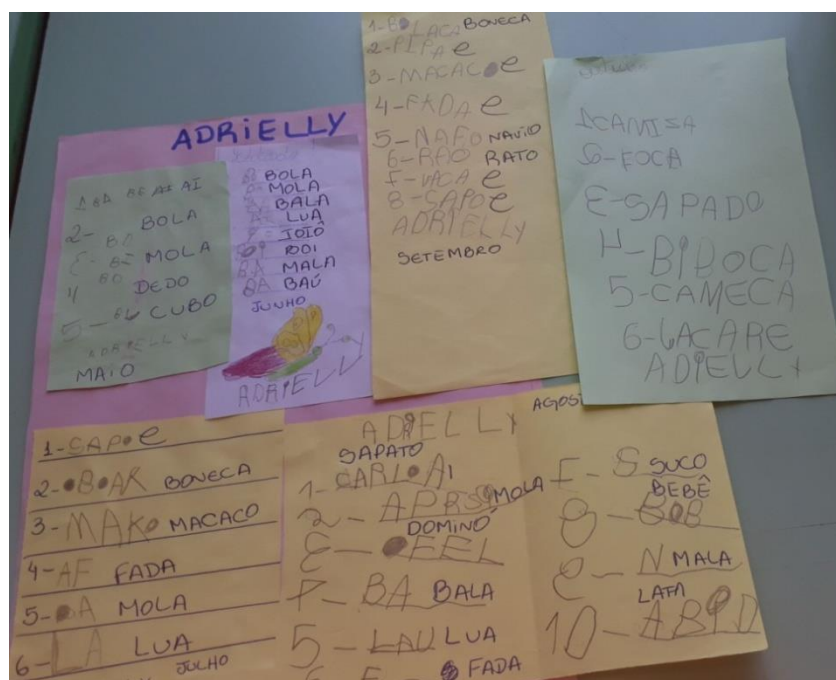 ADRIELLY
1 BA BE AI AI
2- BOLA
BA
E- BE MOLA
4 BO DEDO
5- BU CUBO
ADRIELLY
MAIO
BOLA
MOLA
BALA
LUA
JOIÔ
BOI
BA MALA
BA BAÚ
JUNHO
ADRIELLY
1-BOLACA BONECA
2-PIPA e
3-MACACO e
4-FADA e
5-NAFO NAVIO
6-RAO RATO
F-VACA e
8-SAPO e
ADRIELLY
SETEMBRO
1CAMISA
6-FOCA
E-SAPADO
4-BIBOCA
5-CAMECA
6-GACARE
ADIELLY
1-SAPO e
2-BOAK BONECA
3-MAKO MACACO
4-AF FADA
5-OA MOLA
6-LA LUA
JULHO
ADRELLY
SAPATO
1-CARLOAI
2-APRSO MOLA
DOMINÓ
E-OEEL
P-BA BALA
5-LAU LUA
6 F- FADA
AGOS
F-S SUCO
BEBÊ
8-BOB
e-N MALA
LATA
10-ABPD